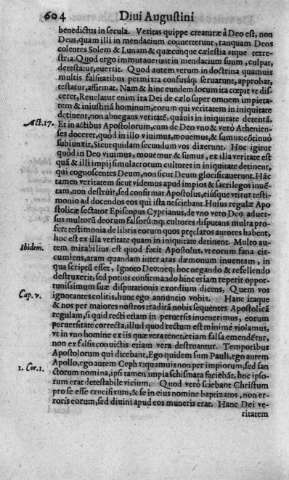 604 Diui Augustini
benedictus in secula. Veritas quippe creaturæ à Deo est, non
Deus, quam illi in mendacium conuerterunt, tanquam Deos
colentes Solem & Lunam & quæcunque cælestia atque terrestria.
Quod ergo immutauerunt in mendacium suum, culpat,
detestatur, euertit. Quod autem verum in doctrina quamuis
multis falsitatibus permixta confusaque seruarunt, approbat,
testatur, affirmat. Nam & hinc eundem locum ita cœpit vt diceret,
Reuelatur enim ira Dei de cælo super omnem impietatem
& iniustitiã hominum, eorum qui veritatem in iniquitate
detinent, non abnegans veritatẽ, quãuis in iniquitate detentã.
Act. 17. Et in actibus Apostolorum, cum de Deo vno & vero Atheniensibus
doceret, quod in illo viuimus, mouemur, & sumus: continuò
subiunxit, Sicut quidam secundum vos dixerunt. Hoc igitur
quod in Deo viuimus, mouemur & sumus, et illa veritas est
quã & illi impij simulacrorum cultores in iniquitate detinent,
qui cognoscentes Deum, non sicut Deum glorificauerunt. Hãc
tamen veritatem sicut videmus apud impios & sacrilegos inuentam,
non destruit, sed confirmat Apostolus, eisque vtitur testimonio
ad docendos eos qui ista nesciebant. Huius regulæ Apostolicæ
sectator Episcopus Cyprianus, de vno vero Deo aduersus
multorũ deorum falsorũque cultores disputans multa profert
testimonia de libris eorum quos præclaros autores habent,
hoc est ex illa veritate quam in iniquitate detinent. Multo autem
Ibidem. mirabilius est quod fecit Apostolus, vt eorum fana circumiens,
aram quandam inter aras dæmonum inuentam, in
qua scriptũ esset, Ignoto Deo, non hoc negando & refellendo
destrueret, sed potius confirmando hinc etiam reperit opportunissimum
suæ disputationis exordium dicens, Quem vos
Cap. v. ignorantes colitis, hunc ego annuncio vobis. Hanc itaque
& nos per maiores nostros traditã nobis sequentes Apostolicã
regulam, si quid recti etiam in peruersis inuenimus, eorum
peruersitate correcta, illud quod rectum est minimè violamus,
vt in eo homine ex iis quæ vera tenet, etiam falsa emendẽtur,
non ex falsis conuictis etiam vera destruantur. Temporibus
Apostolorum qui dicebant, Ego quidem sum Pauli, ego autem
1. Cor. 1. Apollo, ego autem Cephæ: quamuis non per impiorum, sed sanctorum
nomina, ipsi tamen impia schismata faciebãt, hoc ipsorum
erat detestabile vicium. Quod verò sciebant Christum
pro se esse crucifixum, & se in eius nomine baptizatos, non erroris
eorum, sed diuini apud eos muneris erat. Hanc Dei veritatem